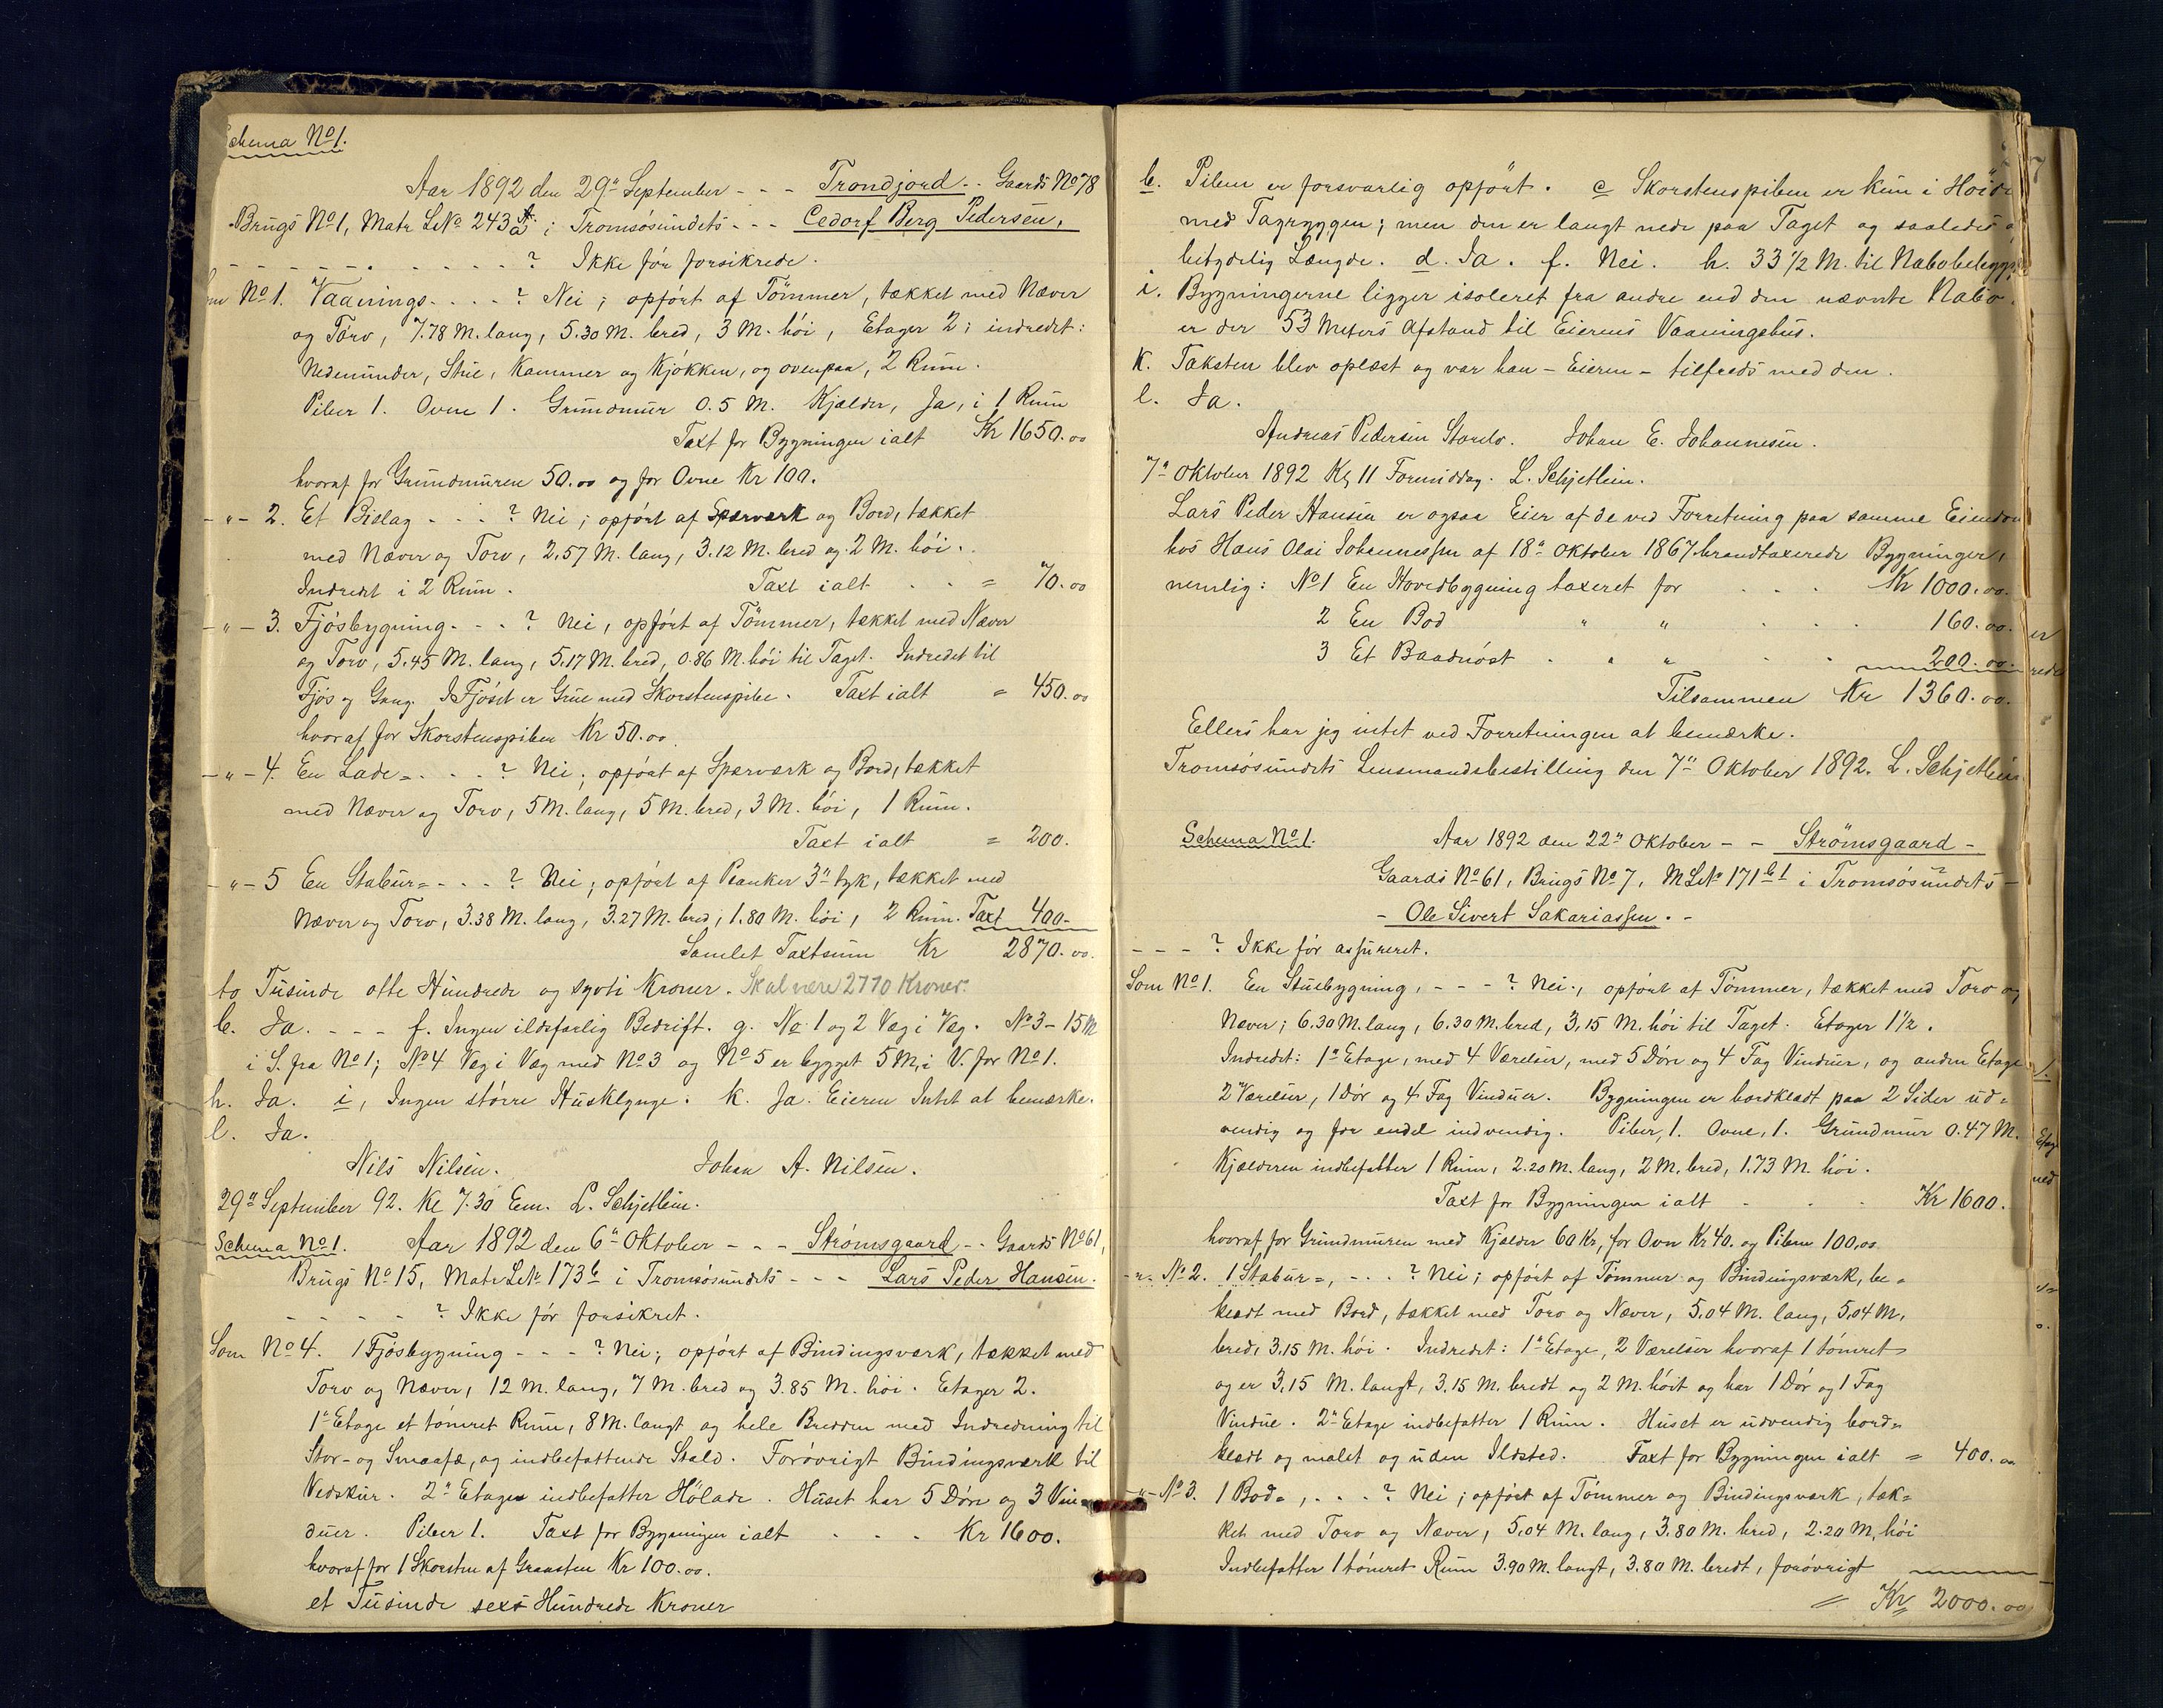 Schema No 1.
Aar 1892 den 29" September - - - Trondjord - - Gaards No 78
Brugs No 1, Matr LNo 243 a i Tromsösundets - - - Cedorf Berg Pedersen,
- - - - - - - - - ? Ikke før forsikrede.
No 1. Vaanings- - - - ? Nei; opført af Tömmer, tækket med Næver
og Törv, 7.78 M. lang, 5.30 M. bred, 3 M. höi, Etager 2; indredet:
Nedenunder, Stue, Kammer og Kjøkken, og ovenpaa, 2 Rum.
Piber 1. Ovne 1. Grundmur 0.5 M. Kjælder, Ja, i 1 Rum
Taxt for Bygningen ialt Kr 1650.00
hvoraf for Grundmuren 50.00 og for Ovne Kr 100.
- " - 2. Et Bislag - - - ? Nei; opført af Spærværk og Bord, tækket
med Næver og Torv, 2.57 M. lang, 3.12 M. bred og 2 M. höi.
Indredet i 2 Rum. Taxt ialt . . = 70.00
- " - 3. Fjösbygning - - - ? Nei, opført af Tömmer, tækket med Næver
og Torv, 5.45 M. lang, 5.17 M. bred, 0.86 M. höi til Taget. Indredet til
Fjös og Gang. I Fjöset er Grue med Skorstenspibe. Taxt ialt = 450.00
hvoraf for Skorstenspiben Kr 50.00
- " - 4. En Lade= . . . ? Nei; opført af Spærværk og Bord, tækket
med Næver og Torv, 5 M. lang, 5 M. bred, 3 M. höi, 1 Rum.
Taxt ialt = 200.
- " - 5 En Stabur= - - - ? Nei; opført af Planker 3" tyk, tækket med
Næver og Torv, 3.38 M. lang, 3.27 M. bred, 1.80 M. höi, 2 Rum. Taxt 400-
Samlet Taxtsum Kr 2870.00.
to Tusinde otte Hundrede og sytti Kroner. Skal være 2770 Kroner.
b. Ja. - - - f. Ingen ildsfarlig Bedrift. g. No 1 og 2 Væg i Væg. No 3 - 15 M
i S. fra No 1; No 4 Væg i Væg med No 3 og No 5 er bygget 5 M, i V. for No 1.
h. Ja. i, Ingen större Husklynge. k. Ja. Eieren Intet at bemærke.
l. Ja.
Nils Nilsen. Johan A. Nilsen.
29" September 92. Kl 7.30 Em. L. Schjetlein.
Schema No 1. Aar 1892 den 6" Oktober - - - Strömsgaard - - Gaards No 61,
Brugs No 15, Matr LNo 173 b i Tromsösundets - - - Lars Peder Hansen.
- - - - - ? Ikke før forsikret.
Som No 4. 1 Fjösbygning - - - ? Nei; opført af Bindingsværk, tækket med
Torv og Næver, 12 M. lang, 7 M. bred og 3.85 M. höi. Etager 2.
1" Etage et tömret Rum, 8 M. langt og hele Bredden med Indredning til
Stor- og Smaafæ, og indbefattende Stald. Forövrigt Bindingsværk til
Vedskur. 2" Etage indbefatter Hölade. Huset har 5 Döre og 3 Vin=
duer. Piber 1. Taxt for Bygningen ialt . . . Kr 1600.
hvoraf for 1 Skorsten af Graasten Kr 100.00.
et Tusinde sexs Hundrede Kroner
b. Piben er forsvarlig opført. c Skorstenspiben er kun i Höide
med Tagryggen; men den er langt nede paa Taget og saaledes
betydelig Længde. d. Ja. f. Nei. h. 33 1/2 M. til Nabobebygg
i. Bygningerne ligger isoleret fra andre end den nævnte Nabo.
er der 53 Meters Afstand til Eierens Vaaningshus.
k. Taksten blev oplæst og var han - Eieren - tilfreds med den.
l. Ja.
Andreas Pedersen Storelv. Johan E. Johannesen.
7" Oktober 1892 Kl 11 Formiddag. L. Schjetlein.
Lars Peder Hansen er ogsaa Eier af de ved Forretning paa samme Eiendom
hos Hans Olai Johannessen af 18" Oktober 1867 brandtaxerede Bygninger,
nemlig: No 1 En Hovedbygning taxeret for . . . Kr 1000.00.
2 En Bod " " . . . 160.00.
3 Et Baadnöst . " " . . 200.00.
Tilsammen Kr 1360.00.
Ellers har jeg intet ved Forretningen at bemærke.
Tromsösundets Lensmandsbestilling den 7" Oktober 1892. L. Schjetlein
Schema No 1. Aar 1892 den 22" Oktober - - Strömsgaard -
Gaards No 61, Brugs No 7, MLNo 171 b 1 i Tromsösundets -
- Ole Sivert Sakariassen. -
- - - ? Ikke før assureret.
Som No 1. En Stuebygning, - - - ? Nei., opført af Tömmer, tækket med Torv og
Næver; 6.30 M. lang, 6.30 M. bred, 3,15 M. höi til Taget. Etager 1 1/2.
Indredet: 1" Etage, med 4 Værelser, med 5 Döre og 4 Fag Vinduer, og anden Etage
2 Værelser, 1 Dör og 4 Fag Vinduer. Bygningen er bordklædt paa 2 Sider ud=
vendig og for endel indvendig. Piber, 1. Ovne, 1. Grundmur 0.47 M.
Kjælderen indbefatter 1 Rum, 2.20 M. lang, 2 M. bred, 1.73 M. höi.
Taxt for Bygningen ialt . . . Kr 1600.
hvoraf for Grundmuren med Kjælder 60 Kr, for Ovn Kr 40. og Piben 100,00
- " - No 2. 1 Stabur=, - . . ? Nei; opført af Tömmer og Bindingsværk, be=
klædt med Bord, tækket med Torv og Næver, 5.04 M. lang, 5,04 M,
bred, 3.15 M. höi. Indredet: 1" Etage, 2 Værelser hvoraf 1 tömret
og er 3.15 M. langt, 3.15 M. bredt og 2 M. höit og har 1 Dör og 1 Fag
Vindue. 2" Etage indbefatter 1 Rum. Huset er udvendig bord=
klædt og malet og uden Ildsted. Taxt for Bygningen ialt = 400.00
- " - No 3. 1 Bod=, . . . ? Nei; opført af Tömmer og Bindingsværk, tæk=
ket med Torv og Næver, 5,04 M. lang, 3.80 M. bred, 2.20 M, höi
Indbefatter 1 tömret Rum 3.90 M. langt, 3.80 M. bredt, forövrigt
= Kr 2000.00